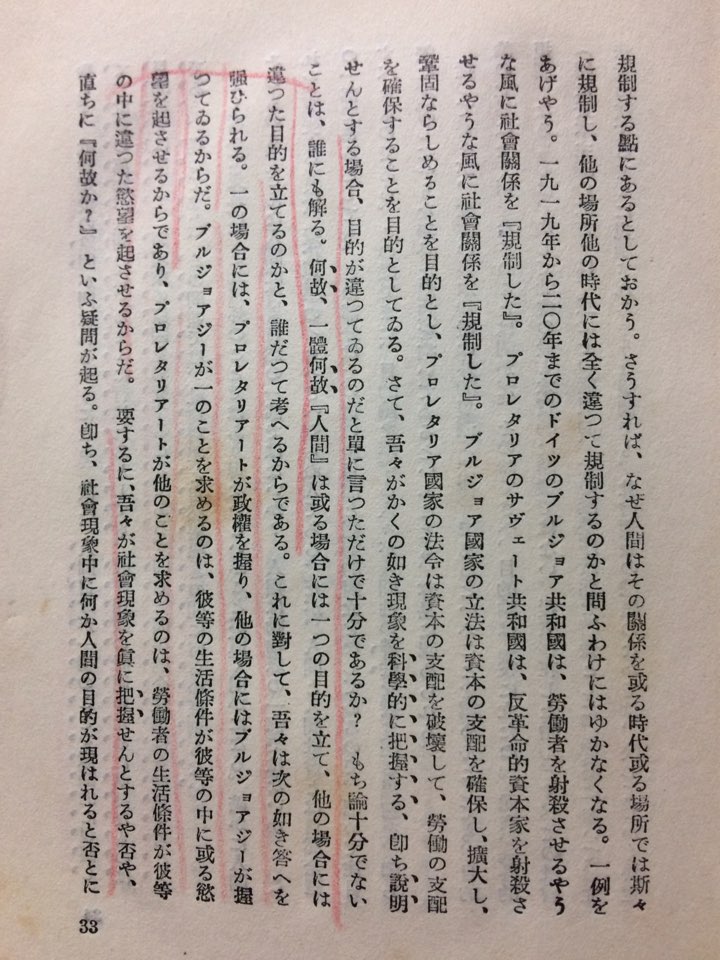 規制する點にあるとしておかう。さうすれば、なぜ人間はその關係を或る時代或る場所では斯々
に規制し、他の場所他の時代には全く違つて規制するのかと問ふわけにはゆかなくなる。一例を
あげやう。一九一九年から二〇年までのドイツのブルジョア共和國は、勞働者を射殺させるやう
な風に社會關係を『規制した』。プロレタリアのサヴェート共和國は、反革命的資本家を射殺さ
せるやうな風に社會關係を『規制した』。ブルジョア國家の立法は資本の支配を確保し、擴大し、
鞏固ならしめることを目的とし、プロレタリア國家の法令は資本の支配を破壞して、勞働の支配
を確保することを目的としてゐる。さて、吾々がかくの如き現象を科學的に把握する、卽ち說明
せんとする場合、目的が違つてゐるのだと單に言つただけで十分であるか？　もち論十分でない
ことは、誰にも解る。何故、一體何故『人間』は或る場合には一つの目的を立て、他の場合には
違つた目的を立てるのかと、誰だつて考へるからである。これに對して、吾々は次の如き答へを
强ひられる。一の場合には、プロレタリアートが政權を握り、他の場合にはブルジョアジーが握
つてゐるからだ。ブルジョアジーが一のことを求めるのは、彼等の生活條件が彼等の中に或る慾
望を起させるからであり、プロレタリアートが他のことを求めるのは、勞働者の生活條件が彼等
の中に違つた慾望を起させるからだ。要するに、吾々が社會現象を眞に把握せんとするや否や、
直ちに『何故か？』といふ疑問が起る。卽ち、社會現象中に何か人間の目的が現はれると否とに
33